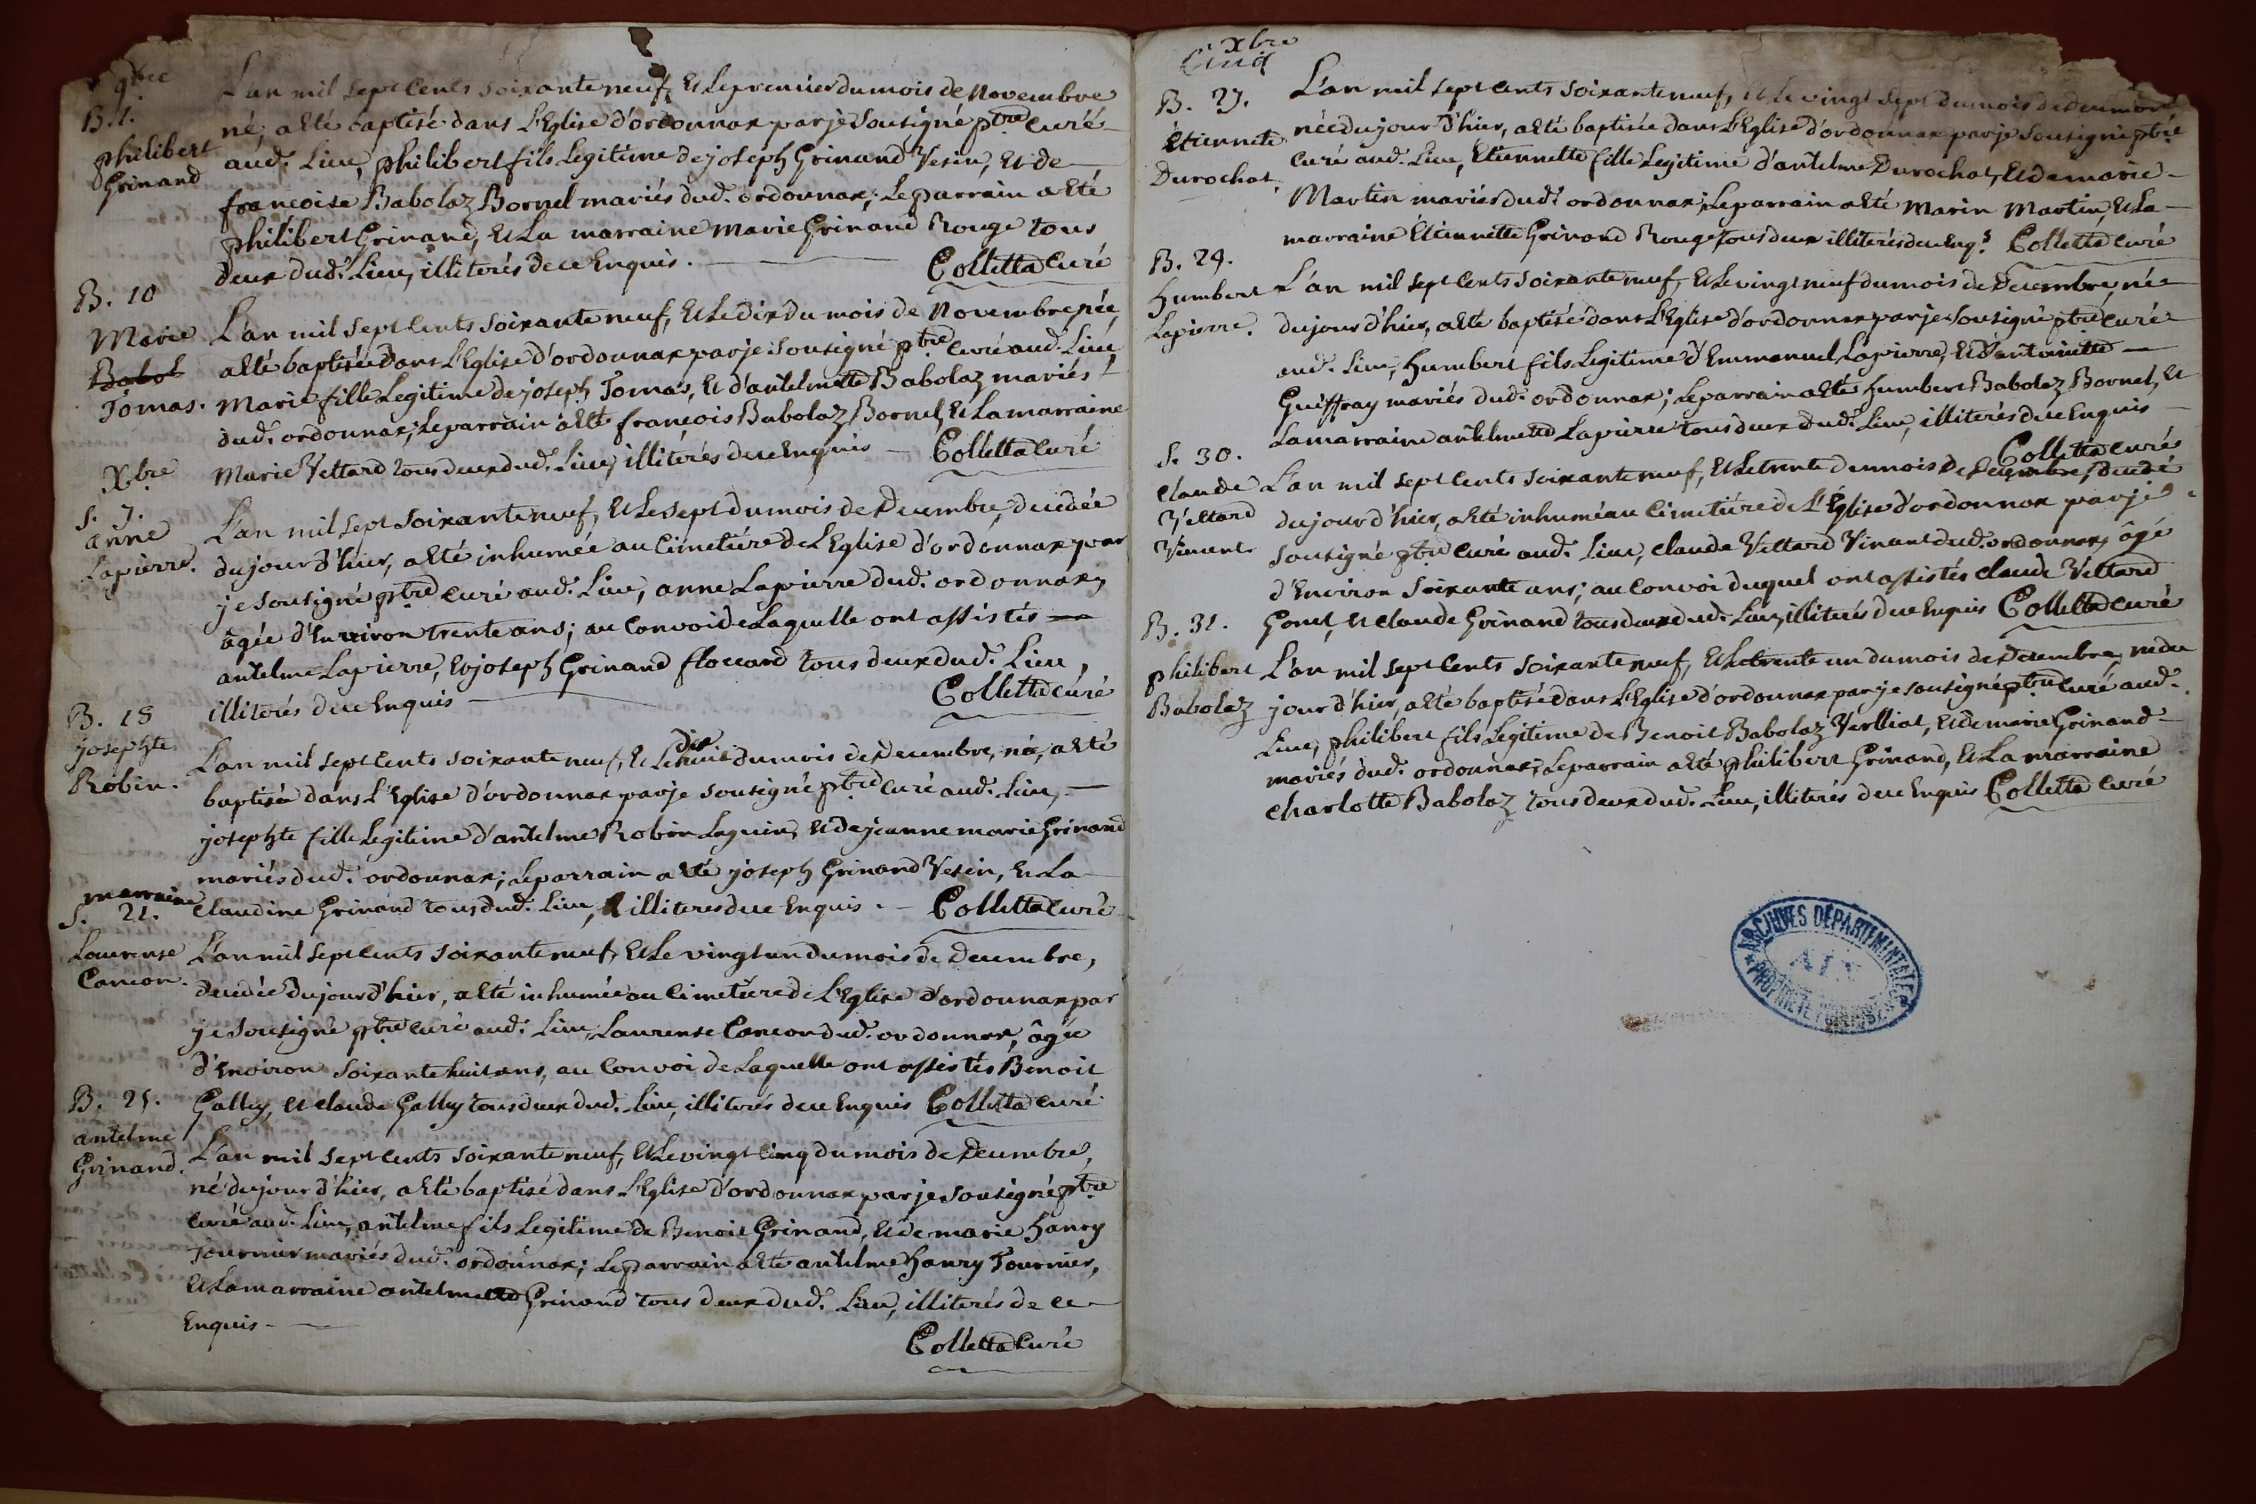 9bre
B. 1.
philibert
Grinand
L'an mil sept Cents soixante neuf, Et Le premier du mois de Novembre
né, a Eté baptisé dans L'Eglise d'ordonnax par je Sousigné ptre Curé
aud. Lieu, philibert fils Legitime de joseph Grinand Vesin, Et de
francoise Babolaz Bornel mariés dud. ordonnax; Le parrain a Eté
philibert Grinand, Et La marraine Marie Grinand Rouge tous
deux dud. Lieu, illiterés de ce Enquis.
Colletta Curé
B. 10
Marie
Babol
Tomas.
L'an mil sept Cents soixante neuf, Et Le dix du mois de Novembre née,
a Eté baptisée dans L'Eglise d'ordonnax par je Sousigné ptre Curé aud. Lieu,
Marie fille Legitime de joseph Tomas, Et d'antelmette Babolaz mariés
dud. ordonnax; Le parrain a Eté françois Babolaz Bornel, Et La marraine
Marie Vettard tous deux dud. Lieu, illitérés de ce Enquis - Colletta Curé
Xbre
S. 7.
anne
Lapierre.
L'an mil sept soixante neuf, Et Le sept du mois de Decembre, decedée
du jour d'hier, a Eté inhumée au Cimetiére de L'Eglise d'ordonnax par
je Sousigné ptre Curé aud. Lieu, anne Lapierre dud. ordonnax,
âgée d'Environ trente ans; au Convoi de Laquelle ont assistés
antelme Lapierre, Et joseph Grinand floccard tous deux dud. Lieu,
illiterés de ce Enquis
Colletta Curé
B. 18
josephte
Robin.
dix
L'an mil sept Cents soixante neuf, Et Le huit du mois de Decembre, née, a Eté
baptisée dans L'Eglise d'ordonnax par je sousigné ptre Curé aud. Lieu,
josephte fille Legitime d'antelme Robin Laguin, Et de jeanne marie Grinand
mariés dud. ordonnax; Le parrain a Eté joseph Grinand Vesin, Et La
marraine Claudine Grinand tous dud. Lieu, illiterés de ce Enquis. - Colletta Curé
S. 21.
Laurense
Cancon.
L'an mil sept Cents soixante neuf, Et Le vingt un du mois de Decembre,
decedée du jour d'hier, a Eté inhumée au Cimetiére de L'Eglise d'ordonnax par
je Sousigné ptre Curé aud. Lieu, Laurense Cancon dud. ordonnax, âgée
d'Environ soixante huit ans, au Convoi de Laquelle ont assistés Benoit
Galley, Et Claude Galley tous deux dud. Lieu, illiterés de ce Enquis Colletta Curé
B. 25.
antelme
Grinand.
L'an mil sept Cents soixante neuf, Et Le vingt Cinq du mois de Decembre,
né du jour d'hier, a Eté baptisé dans L'Eglise d'ordonnax par je Sousigné ptre
Curé aud. Lieu, antelme fils Legitime de Benoit Grinand, Et de marie Hanry
Tournier mariés dud. ordonnax; Le parrain a Eté antelme Hanry Tournier,
Et La marraine antelmette Grinand tous deux dud. Lieu, illiterés de ce
Enquis -
Colletta Curé
xbre
Cinq
B. 27.
Etiennette
Durochat.
L'an mil sept Cents soixante neuf, Et Le vingt sept du mois de decembre
née du jour d'hier, a Eté baptisée dans L'Eglise d'ordonnax par je Sousigné ptre
Curé aud. Lieu, Etiennette fille Legitime d'antelme Durochat, Et de marie
Martin mariés dud. ordonnax; Le parrain a Eté Marin Martin, Et La
marraine Etiennette Grinand Rouge tous deux illiterés de ce Enq.s Colletta Curé
B. 29.
Humbert
Lapierre.
L'an mil sept Cents soixante neuf, Et Le vingt neuf du mois de Decembre, né
du jour d'hier, a Eté baptisé dans L'Eglise d'ordonnax par je Sousigné ptre Curé
aud. Lieu, Humbert fils Legitime d'Emmanuel Lapierre, Et d'antoinette
Guéffray mariés dud. ordonnax; Le parrain a Eté Humbert Babolaz Bornel, Et
La marraine antelmette Lapierre tous deux dud. Lieu, illiterés de ce Enquis
Colletta Curé
S. 30.
Claude
Vettard
Vinant
L'an mil sept Cents soixante neuf, Et Le trente du mois de Decembre, decedé
du jour d'hier, a Eté inhumé au Cimetiére de L'Eglise d'ordonnax par je
sousigné ptre Curé aud. Lieu, Claude Vettard Vinant dud. ordonnax, âgé
d'Environ soixante ans; au Convoi duquel ont assistés Claude Vettard
Gonet, Et Claude Grinand tous deux dud. Lieu, illiterés de ce Enquis Colletta Curé
B. 31.
philibert
Babolaz
L'an mil sept Cents soixante neuf, Et Le trente un du mois de Decembre, né du
jour d'hier, a Eté baptisé dans L'Eglise d'ordonnax par je sousigné ptre Curé aud.
Lieu, philibert fils Legitime de Benoit Babolaz Verlliat, Et de marie Grinand
mariés dud. ordonnax; Le parrain a Eté philibert Grinand, Et La marraine
Charlotte Babolaz tous deux dud. Lieu, illiterés de ce Enquis Colletta Curé
ARCHIVES DÉPARTEMENTALES
AIN
PROPRIÉTÉ PUBLIQUE